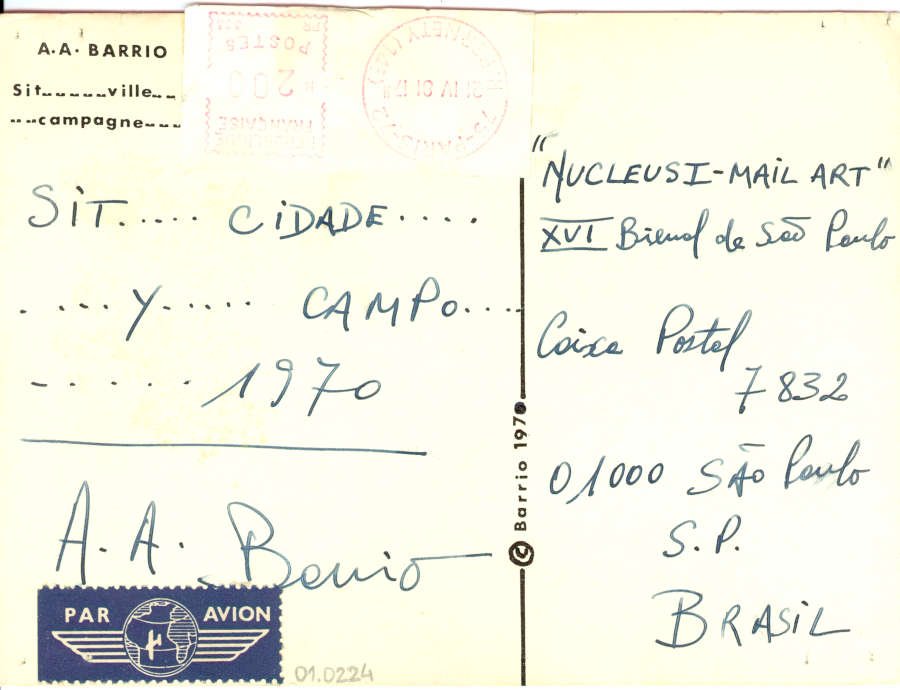 A.A. BARRIO
Sit......ville...
....campagne....
POSTES
200
FRANÇAISE
SiT..... CiDADE....
. ....Y...... CAMPo....
- ..... 1970
A. A. Barrio
PAR AVION
01.0224
© Barrio 1970
"NUCLEUS I-MAiL ART"
XVI Bienal de São Paulo
Caixa Postal
7832
01000 SÃO Paulo
S.P.
BRASiL